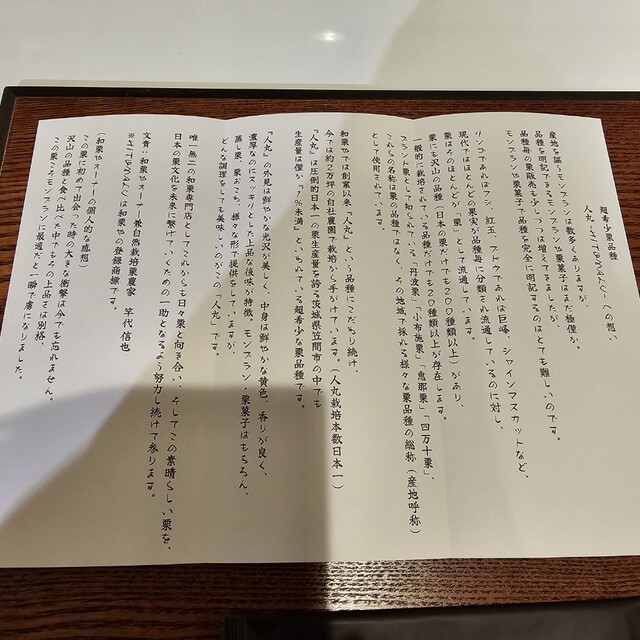 超希少栗品種
人丸〜HITOMARU〜への想い
産地を謳うモンブランは数多くありますが、
品種を明記するモンブランや栗菓子はまだ極僅か。
品種毎の栗販売も少しづつは増えてきましたが、
モンブランや栗菓子で品種を完全に明記するのはとても難しいのです。
リンゴであればフジ、紅玉、ブドウであれば巨峰、シャインマスカットなど、
現代ではほとんどの果実が品種毎に分類され流通しているのに対し、
栗はそのほとんどが「栗」として流通しています。
栗にも沢山の品種(日本の栗だけでも200種類以上)があり、
一般的に栽培されている品種だけでも20種類以上が存在します。
ブランド栗として知られている「丹波栗」「小布施栗」「恵那栗」「四万十栗」、
これらの名称は栗の品種ではなく、その地域で採れる様々な栗品種の総称(産地呼称)
として使用されています。
和栗やでは創業以来「人丸」という品種にこだわり続け、
今では約2万坪の自社農園で栽培から手がけています。(人丸栽培本数日本一)
「人丸」は圧倒的日本一の栗生産量を誇る茨城県笠間市の中でも
生産量は僅か「1%未満」といわれている超希少な栗品種です。
「人丸」の外見は鮮やかな光沢が美しく、中身は鮮やかな黄色。香りが良く、
濃厚なのにスッキリとした上品な後味が特徴。モンブラン・栗菓子はもちろん、
蒸し栗、栗おこわ、様々な形で提供をしていますが、
どんな調理をしても美味しいのがこの「人丸」です。
唯一無二の和栗専門店としてこれからも日々栗と向き合い、そしてこの素晴らしい栗を、
日本の栗文化を未来に繋げていくための一助となるよう努力し続けて参ります。
文責:和栗やオーナー兼自然栽培栗農家 竿代信也
※HITOMARUは和栗やの登録商標です。
(和栗やオーナーの個人的な感想)
この栗に初めて出会った時の大きな衝撃は今でも忘れません。
沢山の品種を食べ比べたけどもその上品さは別格、
この栗こそモンブランに最適だと一瞬で虜になりました。